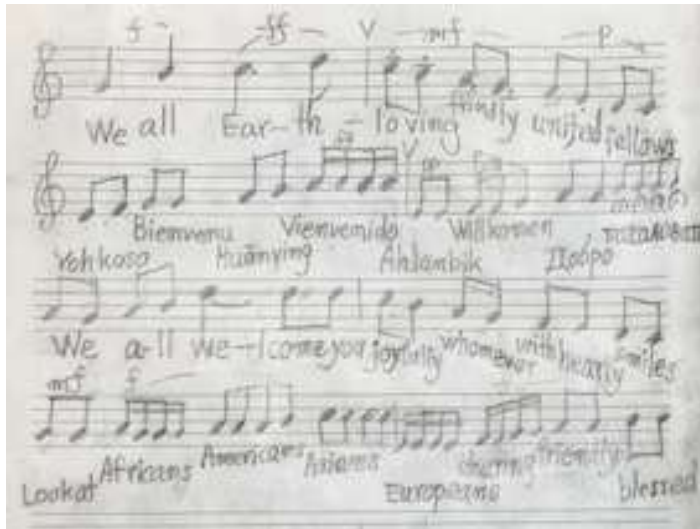 f ff V mf p
We all Ear-th-loving friendly united fellows
V
Bienvenu Vienvenido Willkomen
Yohkoso Huānyíng Ahlanbik Добро пожаловат
We a-ll we-lcome you joyfully whomever with hearty smiles
mf f
Look at Africans Americans Asians Europeans sharing friendly blessed